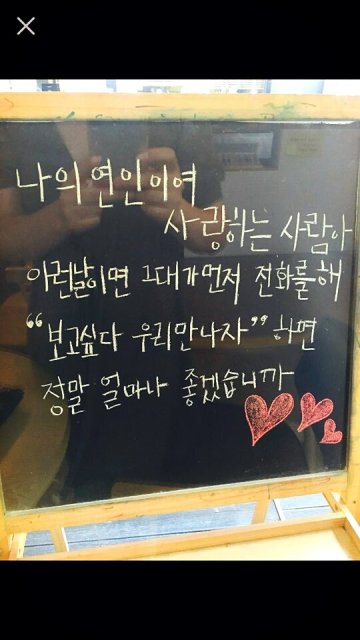 나의 연인이여
사랑하는 사람아
이런날이면 그대가먼저 전화를해
“보고싶다 우리만나자” 하면
정말 얼마나 좋겠습니까